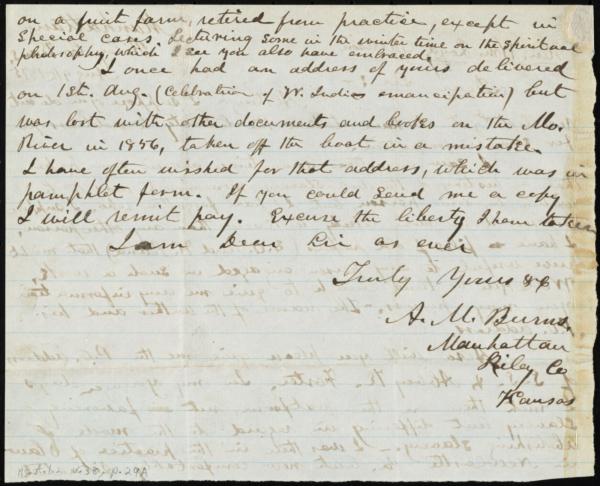 on a fruit farm, retired from practice, except in
special cases. Lecturing some in the winter time on the Spiritual
philosophy, which I see you also have embraced.
I once had an address of yours delivered
on 1st. Aug. (Celebration of W. Indies emancipation) but
was lost with other documents and books on the Mo.
River in 1856, taken off the boat in a mistake.
I have often wished for that address, which was in
pamphlet form. If you could send me a copy
I will remit pay. Excuse the liberty I have taken
I am Dear Sir as ever
Truly Yours &c
A. M. Burns.
Manhattan
Riley Co
Kansas